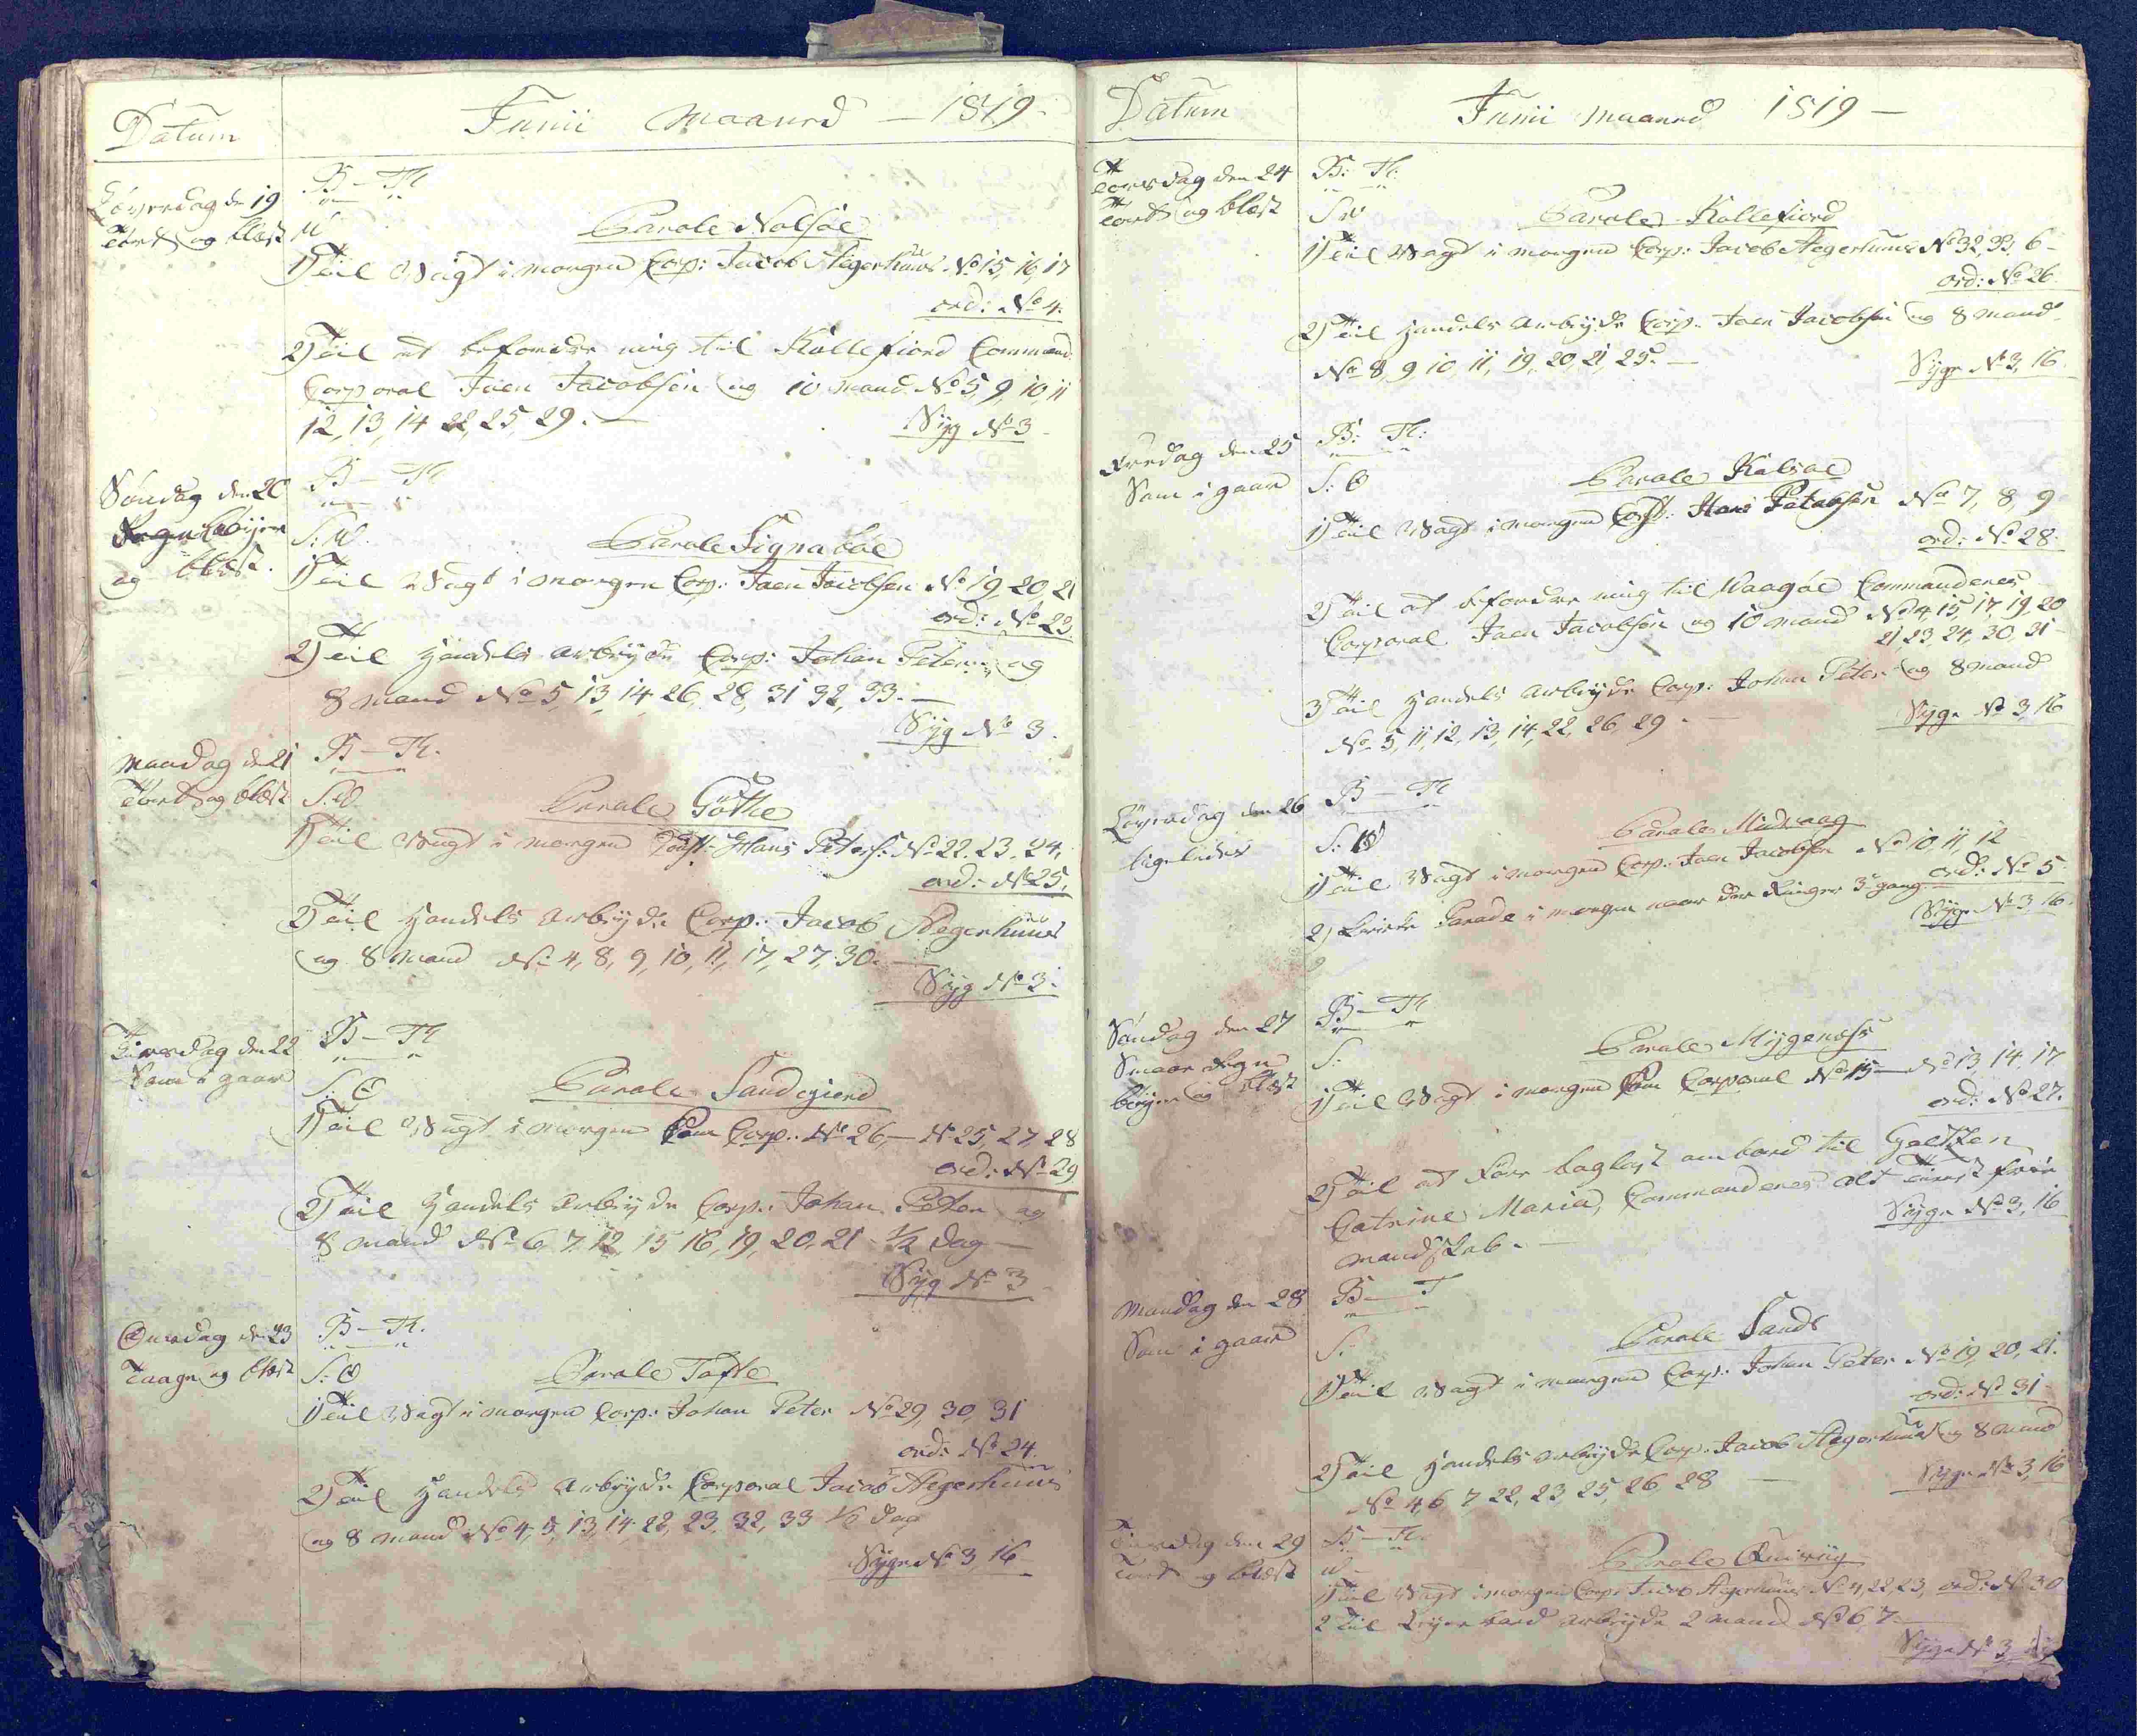 Datum
Junii maaned – 1819 –
Löverdag de 19
Tört og blæst
B – Th
W
Parole Nolsöe
1) Til Wagt i morgen Corp: Jacob Stegerhuus No 15, 16, 17
ord: No 4.
2) Til at befordre mig til Kollefiord Command
Corporal Joen Jacobsen og 10 mand No 5, 9, 10, 11
12, 13, 14 22, 25 29. –
Syg No 3 –
Søndag den 20
Regn Ebyer
og blæst.
B – Th
S: W.
Parole Signaböe
1) Til Wagt i morgen Corp: Joen Jacobsen No 19, 20, 21
ord: No 23.
2) Til Handels Arbeyde Corp: Johan Peter og
8 mand No 5, 13, 14 26, 28, 31 32, 33. –
Syg No 3.
Mandag de 21
Tört og blæst
B – Th.
S. W
Parole Göthe
1) Til Wagt i morgen Const: Hans Peters: No 22. 23. 24,
ord: No 25,
2) Til Handels Arbeyde Corp: Jacob Stegerhuus
og 8 mand No 4, 8, 9, 10, 11, 17, 27, 30. –
Syg No 3.
Tirsdag den 22
Som i gaar
B – Th
S: O
Parole Sandegierd
1) Til Wagt i morgen som Corp: No 26, – No 25, 27 28
ord: No 29
2) Til Handels Arbeyde Corp: Johan Peter og
8 mand No 6 7 12, 15 16, 19, 20, 21 – 1/2 dag –
Syg No 3
Onsdag de 23
Taage og blæst
B – Th.
S: O
Parole Tofte
1) Til Wagt i morgen Corp: Johan Peter No 29, 30, 31
ord: No 24.
2) Til Handels Arbeyde Corporal Jacob Stegerhuus
og 8 mand No 4, 5, 13, 14 22, 23, 32, 33 1/2 dag
Syge No 3, 16 –
Datum
Junii maaned 1819 –
Torsdag den 24
Tört og blæst
B: Th:
S W
Parole Kollefiord
1) Til Wagt i morgen Corp: Jacob Stegerhuus No 32, 33, 6 –
ord: No 26.
2) Til Handels Arbeyde Corp: Joen Jacobsen og 8 mand
No 8, 9 10, 11, 19, 20, 21, 25. –
Syge No 3, 16.
Fredag den 25
Som i gaar
B: Th:
S: O
Parole Kalsöe
1) Til Wagt i morgen Const: Hans Petersen No 7, 8, 9
ord: No 28.
2) Til at befordre mig til Waagöe Commanderes
Corporal Joen Jacobsen og 10 mand No 4, 15, 17, 19, 20
21, 23, 24, 30, 31 –
3) Til Handels Arbeyde Corp: Johan Peter og 8 mand
No 5, 11, 12, 13, 14, 22, 26, 29. –
Syge No 3, 16
Löverdag den 26
ligeledes
B – Th
S: W
Parole Midvaag
1) Til Wagt i morgen Corp: Joen Jacobsen No 10, 11, 12
ord: No 5
2) Kirke Parade i morgen naar der Ringes 3de gang –
Syge No 3 16.
Søndag den 27
Smaae Regn
böyer og blæst
B – Th
S:
Parole Mygenæss
1) Til Wagt i morgen som Corporal No 15 – No 13, 14, 17
ord: No 27.
2) Til at före baglast ombord til Galeasen
Catrine Maria, Commanderes alt tienest frie
mandskab. –
Syge No 3, 16
Mandag den 28
Som i gaar
B – T
S:
Parole Sands
1) Til Wagt i morgen Corp: Johan Peter No 19, 20, 21.
ord: No 31
2) Til Handels Arbeyde Corp: Jacob Stegerhuus og 8 mand
No 4, 6 7 22, 23, 25, 26 28 –
Syge No 3, 16
Tirsdag den 29
Tört og blæst
B – Th.
W
Parole Quivig
1) Til Wagt i morgen Corp: Jacob Stegerhuus No 4, 22 23, ord: No 30
2 Til arbeyde 2 mand No 6, 7. –
Syge No 3